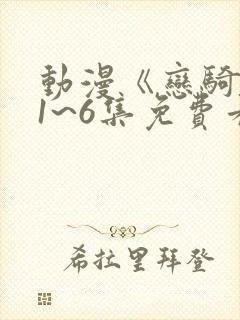 動漫《戀騎
1~6集免費
希拉里拜登